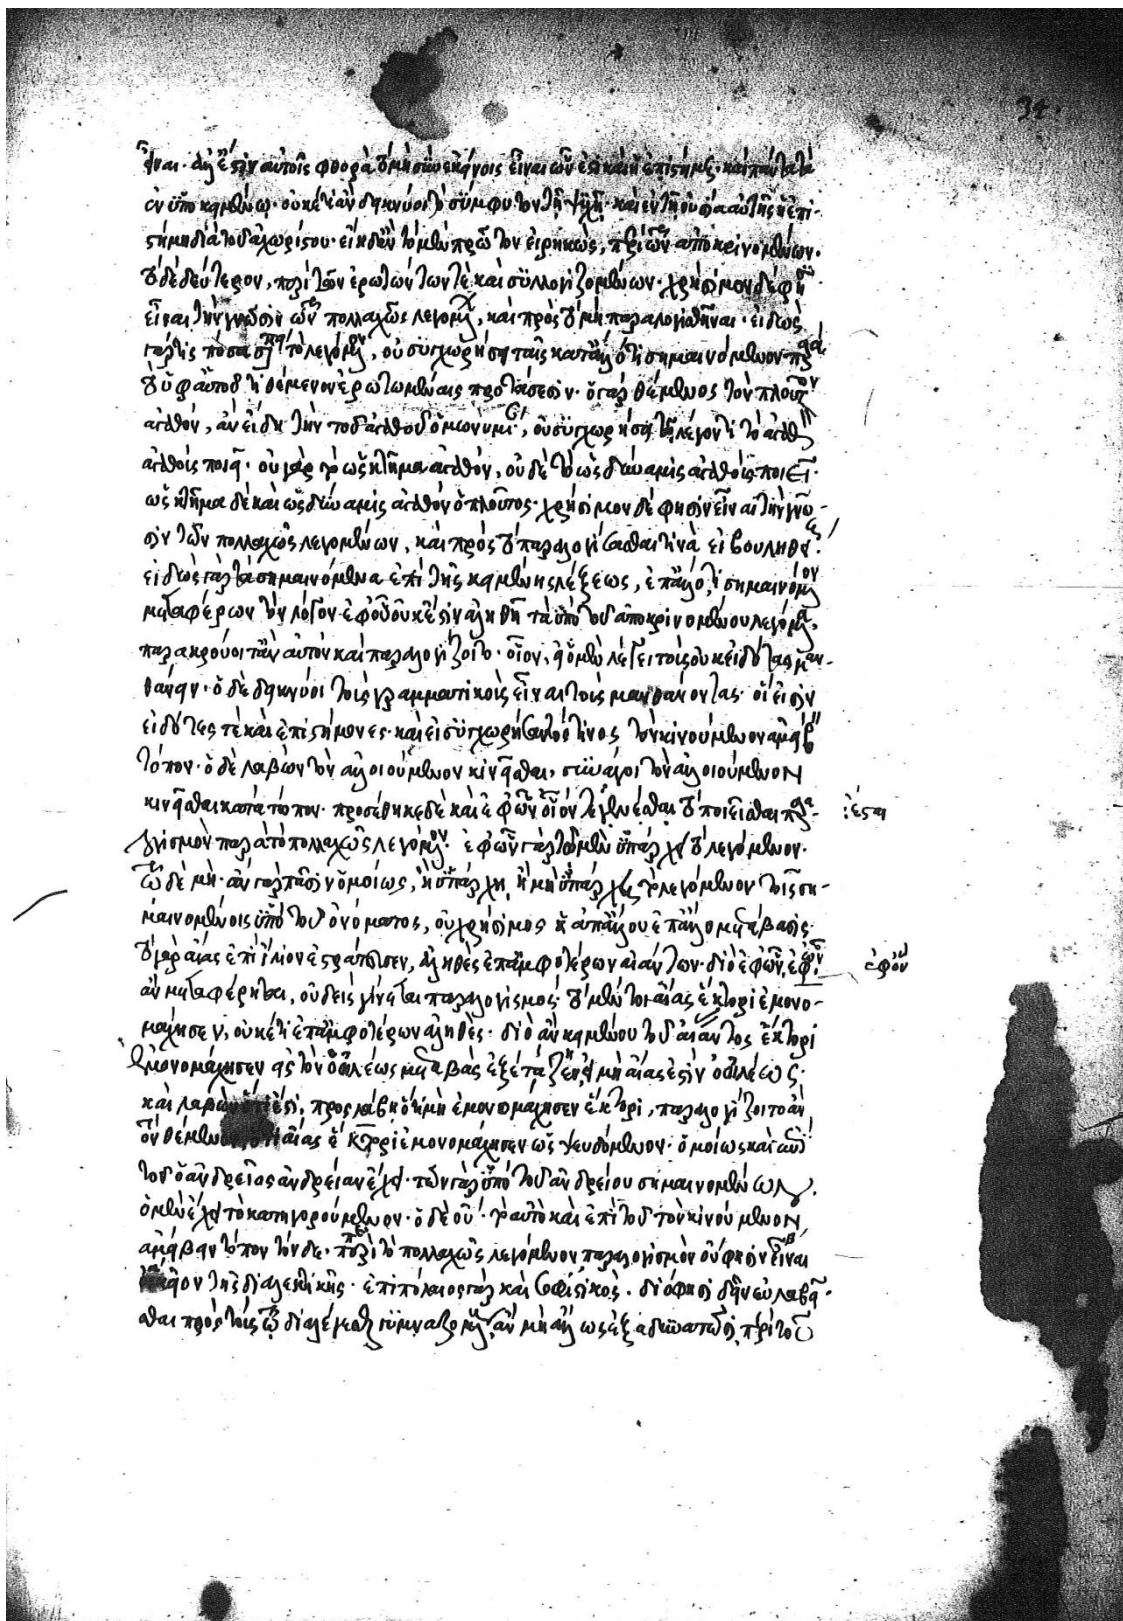 34.
εἶναι· ἀλλ' ἔστιν αὐτοῖς φθορὰ τὸ μὴ ἐκείνοις εἶναι ὧν ἐστι καὶ ἡ ἐπιστήμη· καὶ ταῦτα
ἐν ὑποκειμένῳ· οὐκέτι ἂν δεικνύοι τὸ σύμφυτον τῇ ψυχῇ καὶ ἐν τῇ οὐσίᾳ αὐτῆς ἡ ἐπι-
στήμη διὰ τοῦ ἀχωρίστου· τὸ μὲν πρῶτον εἰρηκὼς, περὶ τῶν ἀποκρινομένων·
τὸ δὲ δεύτερον, περὶ τῶν ἐρωτώντων τὲ καὶ συλλογιζομένων· χρήσιμον δέ φησιν
εἶναι τὴν γνῶσιν τῶν πολλαχῶς λεγομένων, καὶ πρὸς τὸ μὴ παραλογισθῆναι· εἰδὼς
γάρ τις ποσαχῶς τὸ λεγόμενον, οὐ συγχωρήσει ταῖς κατ' ἄλλο τι σημαινόμενον παρὰ
τὸ ὑφ' αὑτοῦ τιθέμενον ἐρωτωμέναις προτάσεσιν· ὁ γὰρ θέμενος τὸν πλοῦτον
ἀγαθόν, ἂν εἰδῇ τὴν τοῦ ἀγαθοῦ ὁμωνυμίαν, οὐ συγχωρήσει τῷ λέγοντι τὸ ἀγαθὸν
ἀγαθοὺς ποιεῖ· οὐ γὰρ τὸ ὡς κτῆμα ἀγαθόν, οὐδὲ τὸ ὡς δύναμις ἀγαθοὺς ποιεῖ·
ὡς κτῆμα δὲ καὶ ὡς δύναμις ἀγαθὸν ὁ πλοῦτος· χρήσιμον δέ φησιν εἶναι τὴν γνῶ-
σιν τῶν πολλαχῶς λεγομένων, καὶ πρὸς τὸ παραλογίσασθαι τινὰ εἰ βουληθείη·
εἰδὼς γὰρ τὰ σημαινόμενα ἐπὶ τῆς κειμένης λέξεως, ἐπ' ἄλλό τι σημαινόμενον
μεταφέρων τὸν λόγον ἐφ' οὗ οὐκ ἔστιν ἀληθῆ τὰ ὑπὸ τοῦ ἀποκρινομένου λεγόμενα,
παρακρούοιτ' ἂν αὐτὸν καὶ παραλογίζοιτο· οἷον, ὁ μὲν λέγει τοὺς οὐκ εἰδότας μαν-
θάνειν· ὁ δὲ δεικνύοι τοὺς γραμματικοὺς εἶναι τοὺς μανθάνοντας· οἵ εἰσιν
εἰδότες τὲ καὶ ἐπιστήμονες· καὶ εἰ συγχωρήσαντός τινος τὸν κινούμενον ἀμείβειν
τόπον· ὁ δὲ λαβὼν τὸν ἀλλοιούμενον κινεῖσθαι, συνάγοι τὸν ἀλλοιούμενον
κινεῖσθαι κατὰ τόπον· προσέθηκε δὲ καὶ ἐφ' ὧν οἷόν τε γενέσθαι τὸ ποιεῖσθαι παρα-
λογισμὸν παρὰ τὸ πολλαχῶς λεγόμενον· ἐφ' ὧν γὰρ τῷ μὲν ὑπάρχει τὸ λεγόμενον·
τῷ δὲ μή· ἂν γὰρ πᾶσιν ὁμοίως, ἢ ὑπάρχῃ, ἢ μὴ ὑπάρχῃ τὸ λεγόμενον τοῖς ση-
μαινομένοις ὑπὸ τοῦ ὀνόματος, οὐ χρήσιμος ἡ ἀπ' ἄλλου ἐπ' ἄλλο μετάβασις·
τὸ γὰρ αἴας ἐπὶ ἴλιον ἐστράτευσεν, ἀληθὲς ἐπ' ἀμφοτέρων αἰάντων· διὸ ἐφ' ὧν, ἐφ' ὃν
ἂν μεταφέρηται, οὐδεὶς γίνεται παραλογισμός· τὸ μέντοι αἴας ἕκτορι ἐμονο-
μάχησεν, οὐκέτι ἐπ' ἀμφοτέρων ἀληθὲς· διὸ ἂν κειμένου τοῦ αἴαντος ἕκτορι
ἐμονομάχησεν εἰς τὸν ὀιλέως μεταβὰς ἐξετάζῃ, εἰ μὴ αἴας ἐστὶν ὁ ὀιλέως·
καὶ λαβὼν ὅτι ἐστί, προσλάβῃ ὅτι μὴ ἐμονομάχησεν ἕκτορι, παραλογίζοιτο ἂν
τὸν θέμενον ὅτι αἴας ἕκτορι ἐμονομάχησεν ὡς ψευδόμενον· ὁμοίως καὶ ἐπὶ
τοῦ ὁ ἀνδρεῖος ἀνδρείαν ἔχει· τῶν γὰρ ὑπὸ τοῦ ἀνδρείου σημαινομένων
ὁ μὲν ἔχει τὸ κατηγορούμενον· ὁ δὲ οὔ· τὸ αὐτὸ καὶ ἐπὶ τοῦ τὸν κινούμενον
ἀμείβειν τόπον τόνδε· τὸν παρὰ τὸ πολλαχῶς λεγόμενον παραλογισμὸν οὔ φησιν εἶναι
οἰκεῖον τῆς διαλεκτικῆς· ἐπιπόλαιος γὰρ καὶ σοφιστικός· διό φησι δεῖν εὐλαβεῖ-
σθαι πρὸς τοὺς τῷ διαλέγεσθαι γυμναζομένους, ἂν μὴ ἄλλως ἐξαδυνατῶσι, περὶ τοῦ
:ἐσαι
ἐφ' ὃν